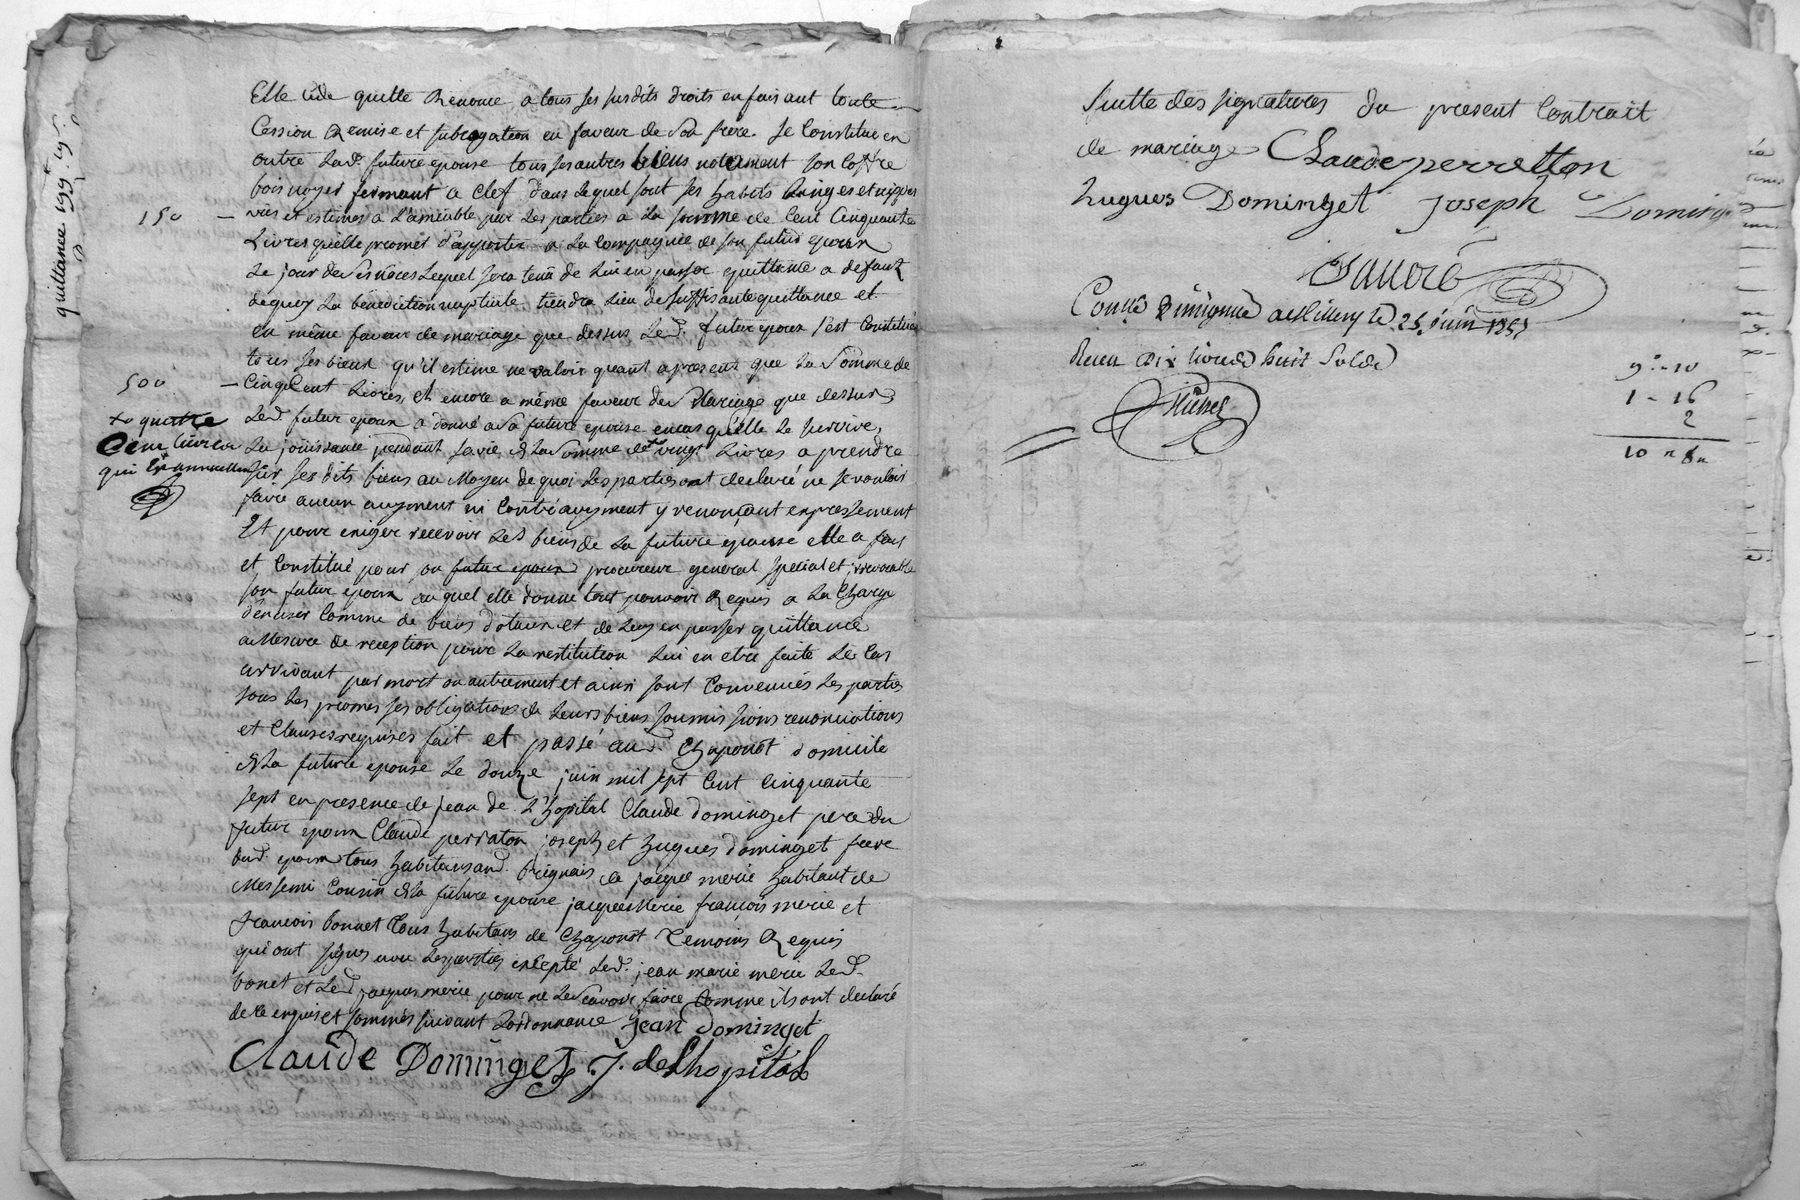 Elle cede quitte Renonce a tous ses susdits droits en faisant toute
Cession Remise et subrogation en faveur de son frere. Se Constitue en
outre lad. future epouse tous ses autres biens notament son Coffre
bois noyer fermant a Clef dans lequel sont ses habits linges et nippes
150 — vus et estimés a l'amiable par les parties a la somme de Cent Cinquante
Livres qu'elle promet d'apporter a la Compagnie de son futur epoux
le jour des noces lequel sera tenu de lui en passer quittance a defaut
dequoy la bénédiction nuptiale tiendra lieu de suffisante quittance et
en même faveur de mariage que dessus led. futur epoux s'est Constitué
tous ses biens qu'il estime ne valoir quant a present que la Somme de
500 — Cinq Cent Livres, et encore a même faveur de Mariage que dessus
led. futur epoux a donné a sa future epouse en cas qu'elle le survive,
la jouissance pendant sa vie de la Somme de vingt Livres a prendre
sur ses dits biens au Moyen de quoi les parties ont declaré ne se vouloir
faire aucun augment ni Contréaugment y renonçant expressement
Et pour exiger recevoir les biens de la future epouse elle a fait
et Constitué pour son futur epoux procureur general special et irrevocable
son futur epoux auquel elle donne tout pouvoir Requis a la Charge
d'en user Comme de biens dotaux et de leur en passer quittance
a Mesure de reception pour la restitution lui en etre faite le Cas
arrivant par mort ou autrement et ainsi sont Convenues les parties
sous les promesses obligations de leurs biens soumissions renonciations
et Clauses requises fait et passé aud. Chaponost domicile
de la future epouse le douze juin mil sept Cent Cinquante
sept en presence de jean de L'hopital Claude dominget pere du
futur epoux Claude perraton joseph et hugues dominget frere
dud. epoux tous habitans aud. Brignais de jacque merie habitant de
Messemi Cousin de la future epouse jacques Merie françois merie et
francois bonnet tous habitans de Chaponost Temoins Requis
qui ont signes avec les parties excepté led. jean marie merie led.
bonet et led. jacques merie pour ne le Scavoir faire Comme ils ont declaré
de ce enquis et sommés suivant L'ordonnance jean dominget
Claude Dominget J. delhopital
quittance
+ quatre
Cent livres
qui
suitte des signatures du present Contrait
de mariage Claude perretton
hugues Dominget joseph Doming
Conllé a Millery le 25 juin 1757
Reçu Dix livres huit Sols
9 = 10
1 - 16
2
10 8